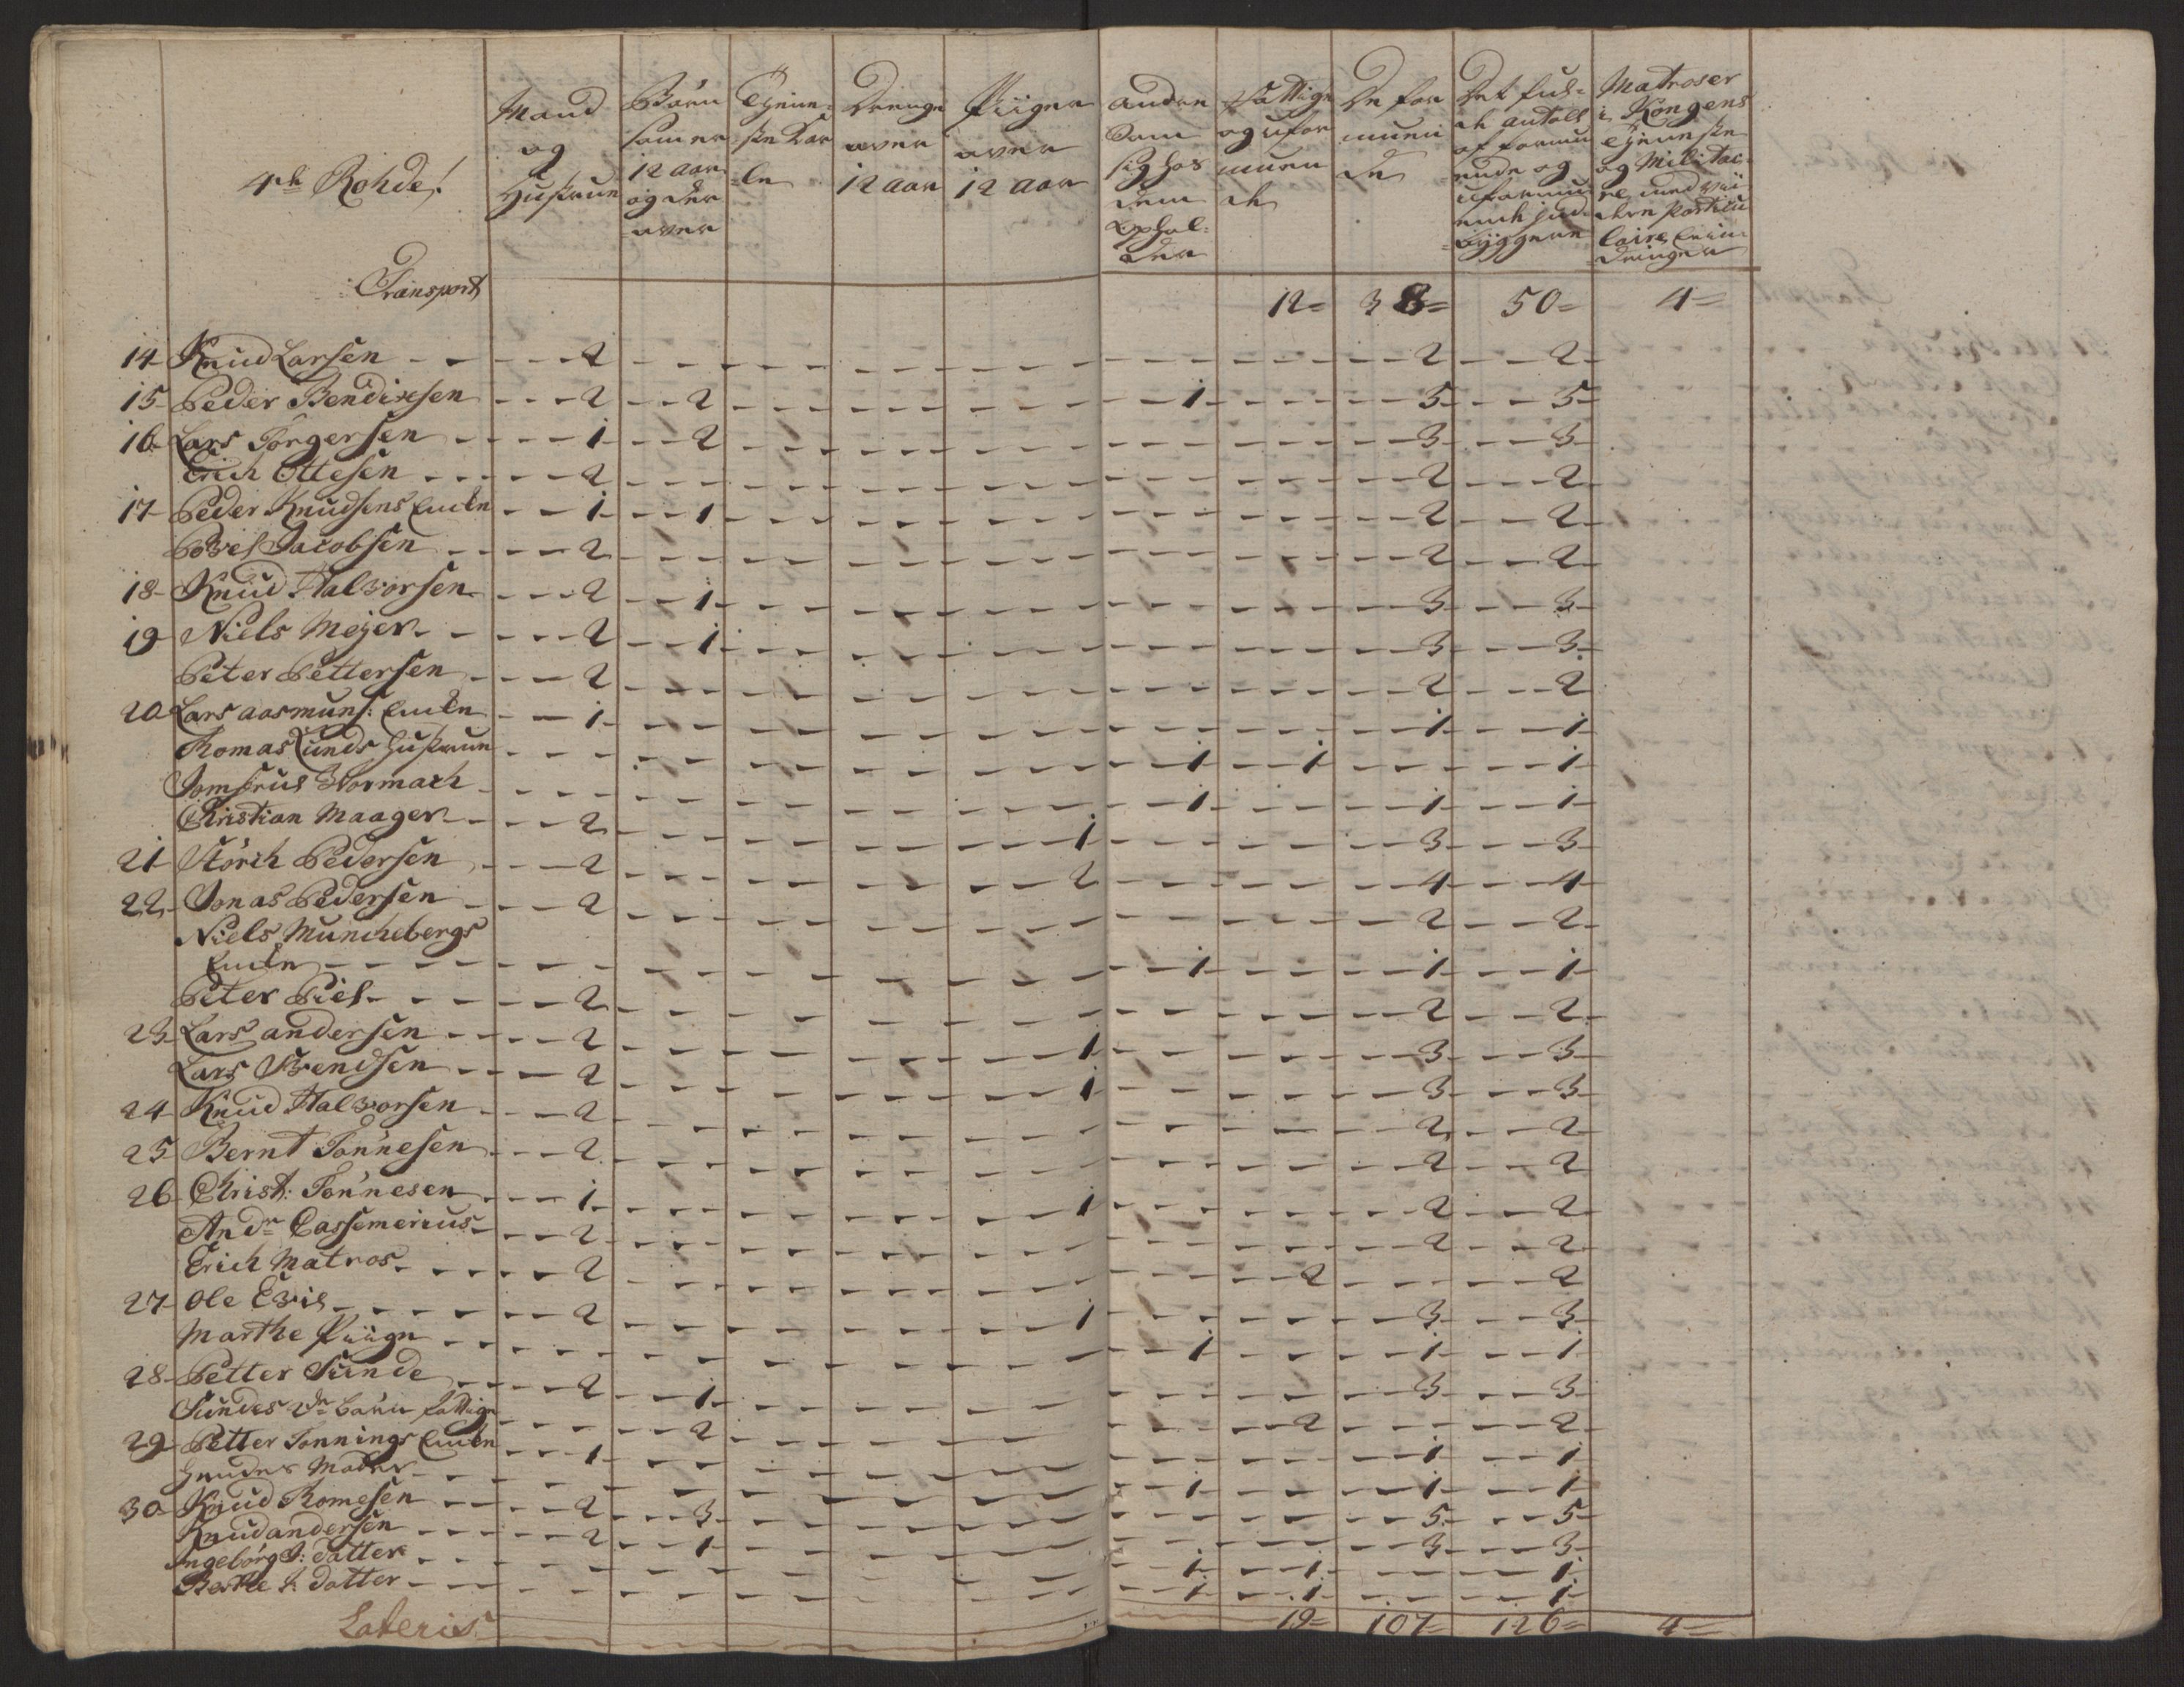 4de Rohde!
Mand og Hustrue
Børn som er 12 aar og der over
Tjenneste Karle
Drenge over 12 aar
Piiger over 12 aar
andre som sig hos dem opholder
Fattige og uformuende
De formuende
Det fulde antall af formuende og uformuende indbyggere
Matroser i Kongens tjenneste og Militaere med
Transport 12= 38= 50= 4=
14 Knud Larsen - - 2 - 2 - 2
15 Peder Bendixsen - - 2 - 2 - 1 - 5 - 5
16 Lars Torgersen - - 1 - 2 - 3 - 3
Erich Ottesen - - 2 - 2 - 2
17 Peder Knudsens Encke - - 1 - 1 - 2 - 2
Povel Jacobsen - - 2 - 2 - 2
18 Knud Halvorsen - - 2 - 1 - 3 - 3
19 Niels Meyer - - 2 - 1 - 3 - 3
Peter Pettersen - - 2 - 2 - 2
20 Lars aasmuns: Encke - - 1 - 1 - 1
Thomas Lunds Hustrue - - 1 - 1 - 1
Jomfrue Wormach - - 1 - 1 - 1
Christian Maager - - 2 - 1 - 3 - 3
21 Störch Pedersen - - 2 - 2 - 4 - 4
22 Jonas Pedersen - - 2 - 2 - 2
Niels Munchebergs
Encke - - 1 - 1 - 1
Peter Piel - - 2 - 2 - 2
23 Lars andersen - - 2 - 1 - 3 - 3
Lars Svendsen - - 2 - 1 - 3 - 3
24 Knud Halvorsen - - 2 - 2 - 2
25 Bernt Tönnesen - - 2 - 2 - 2
26 Christ: Tönnesen - - 1 - 1 - 2 - 2
Andr Cassemerius - - 2 - 2 - 2
Erich Matros - - 2 - 2 - 2
27 Ole Evis - - 2 - 1 - 3 - 3
Marthe Piige - - 1 - 1 - 1
28 Petter Sunde - - 2 - 1 - 3 - 3
Sundes børn fattige - - 2 - 2 - 2
29 Petter Tonnings Encke - - 1 - 1 - 1
Moder - - 1 - 1 - 1
30 Knud Thomesen - - 2 - 3 - 5 - 5
Knud andersen - - 2 - 1 - 3 - 3
Ingeborg J: Datter - - 1 - 1 - 1
Berthe J: Datter - - 1 - 1 - 1
Lateris 19= 107= 126= 4=